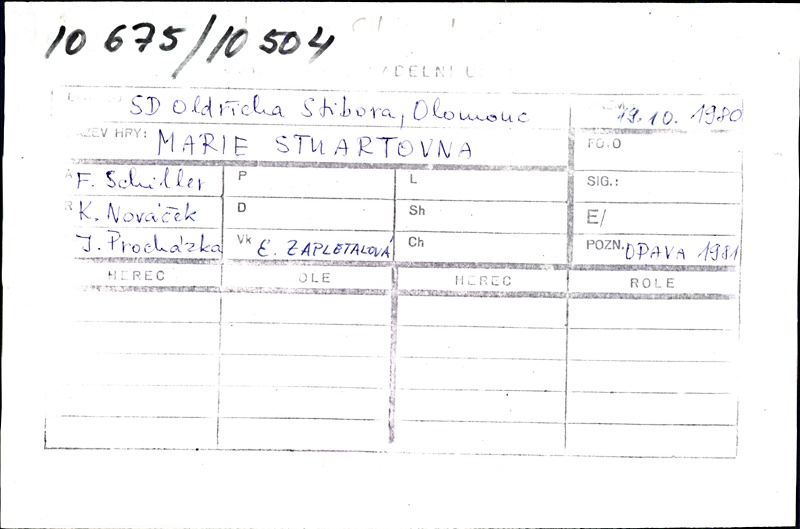 10 675/10 504
SD Oldřicha Stibora, Olomouc 19.10. 1980
HRY: MARIE STUARTOVNA FOTO
A F. Schiller P L SIG.:
R K. Nováček D Sh E/
J. Procházka Vk E. ZAPLETALOVÁ Ch POZN. OPAVA 1981
HEREC OLE HEREC ROLE